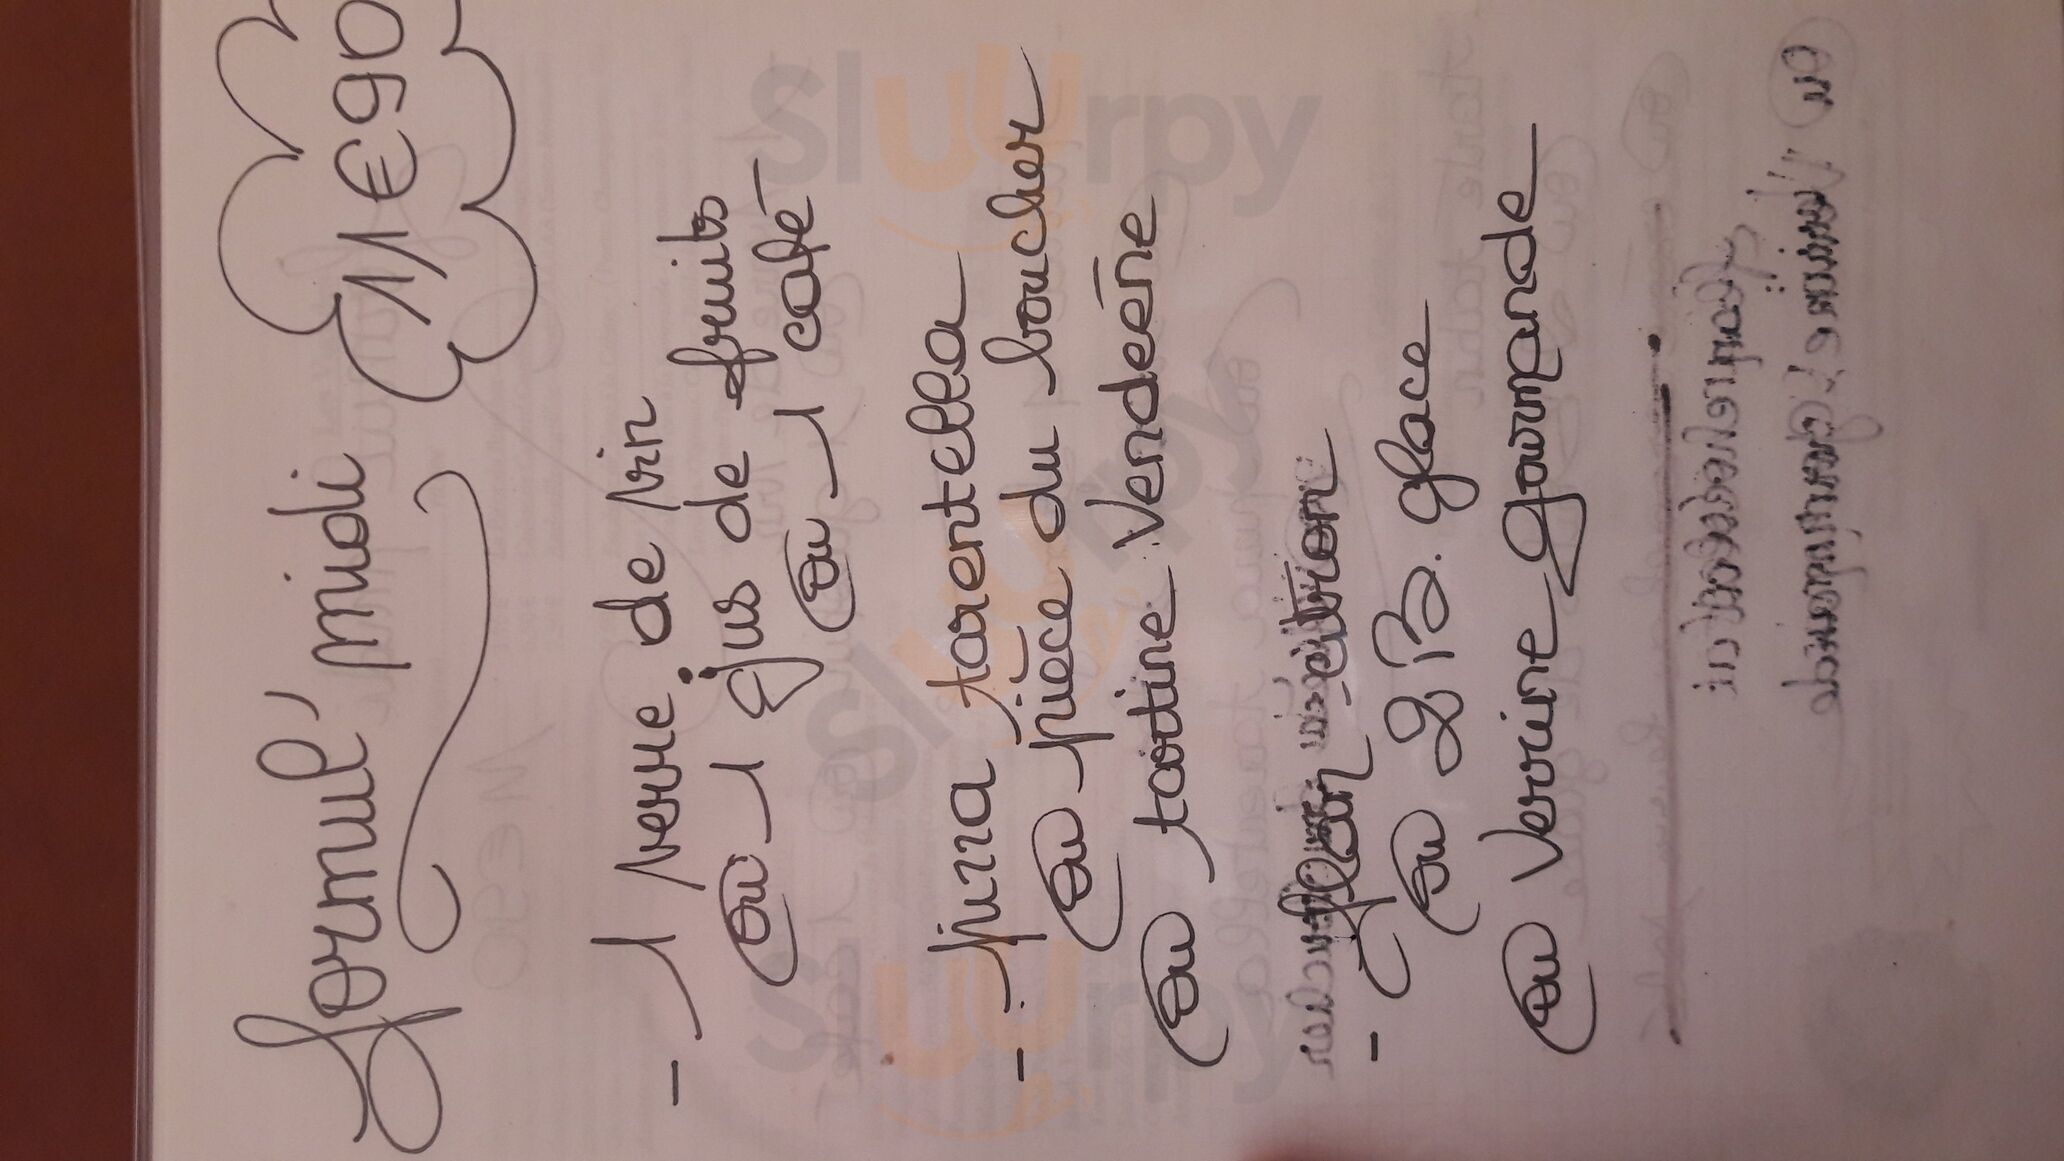 formul' midi 11€90
- 1 verre de vin
ou 1 jus de fruits
ou 1 café
- pizza tarentella
ou pièce du boucher
ou tartine Vendéenne
- flan citron
ou 2 B. glace
ou Verrine gourmande
sluurpy
sluurpy
sluurpy